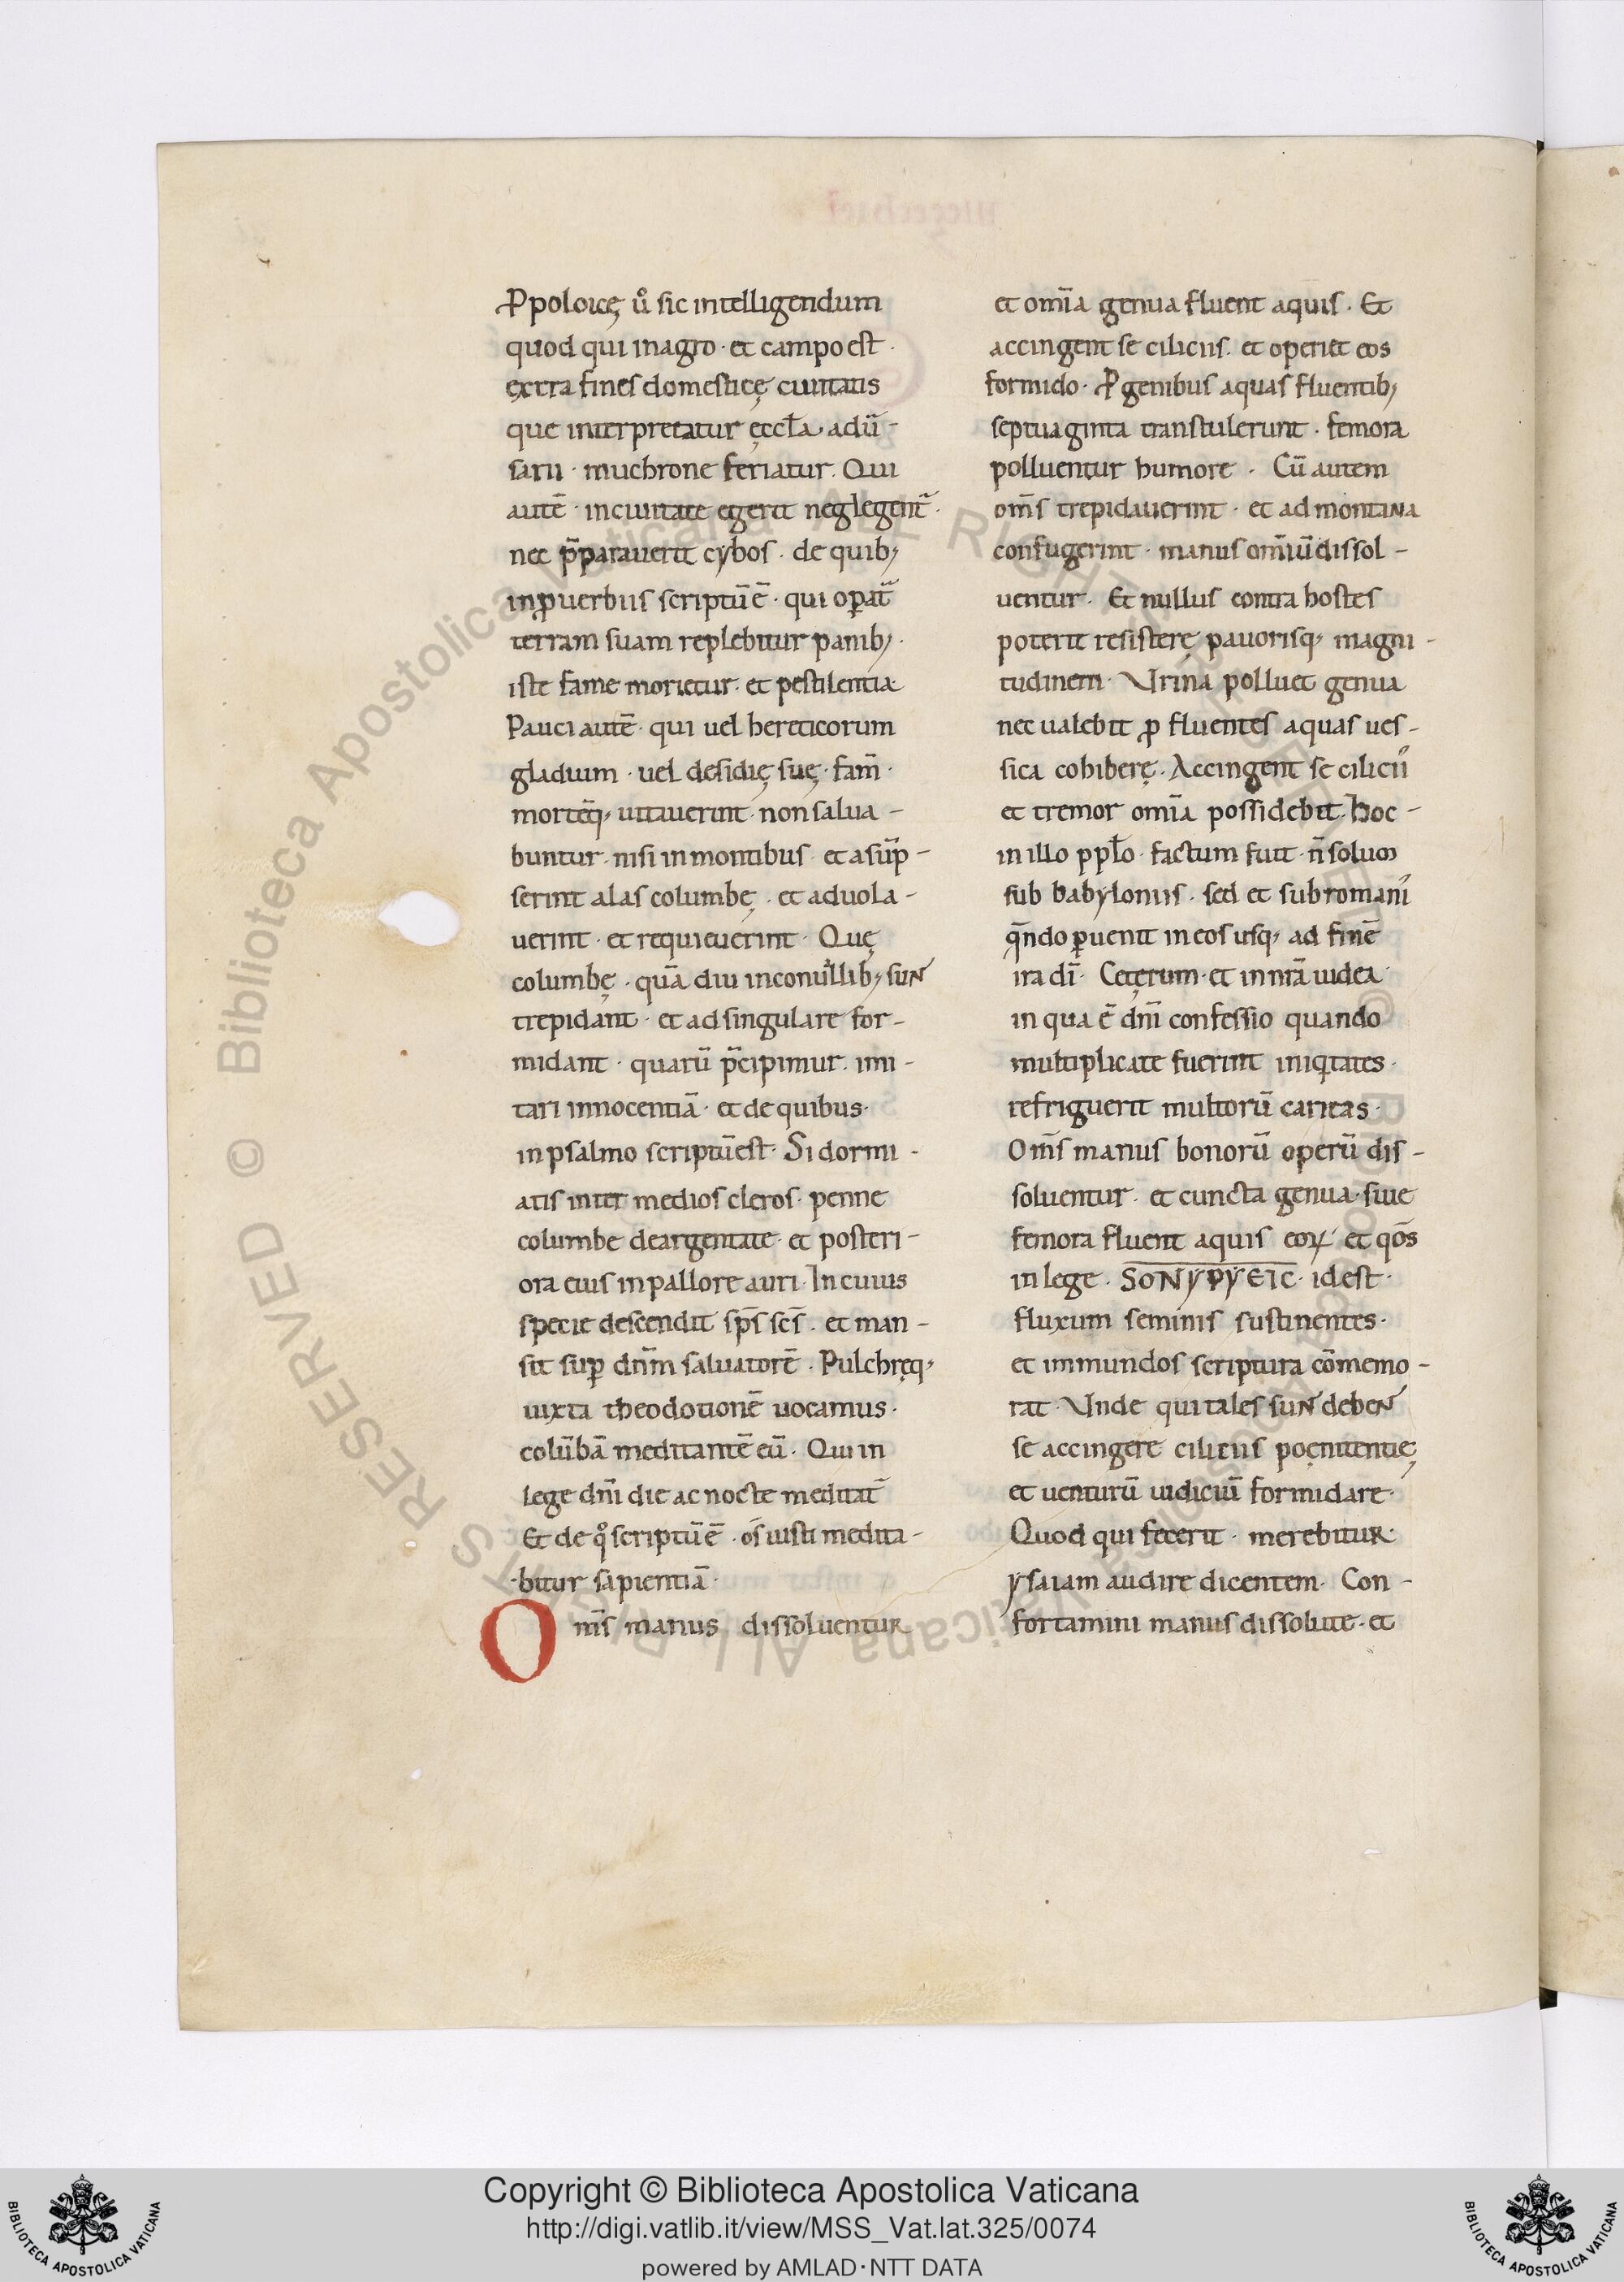 Ꝓpoloicę ů sic intelligendum
quod qui inagro · et campo est ·
extra fines domesticę ciuitatis
que interpretatur ęccła · adū-
sarii · muchrone feriatur. Qui
autē · inciuitate egerit neglegent̄ ·
nec p̄parauerit cybos · de quib;
inꝓuerbiis scriptū ē · qui oꝑat̄
terram suam replebitur panib; ·
iste fame morietur · et pestilentia
Pauci autē · qui uel hereticorum
gladium · uel desidię suę · fam̄ ·
mortēq; uitauerint · non salua-
buntur · nisi in montibus · et asūp-
serint alas columbę · et aduola-
uerint · et requieuerint · Quę
columbę · quādiu inconuallib; sunt
trepidant · et adsingulare for-
midant · quarū p̄cipimur · imi-
tari innocentiā · et de quibus ·
in psalmo scriptū est · Si dormi-
atis inter medios cleros · penne
columbe deargentate · et posteri-
ora eius in pallore auri · In cuius
specie descendit sp̄s sc̄s · et man-
sit suꝑ dn̄m saluatorē · Pulchręq;
iuxta theodotionē uocamus ·
colūbā meditantē eū · Qui in
lege dn̄i die ac nocte meditat̄
Et de qͦ scriptū ē · os iusti medita-
bitur sapientiā ·
Om̄s manus dissoluentur
et om̄ia genua fluent aquis · Et
accingent se ciliciis · et operiet eos
formido · Ꝓ genibus aquas fluentib;
septuaginta transtulerunt · femora
polluentur humore · Cū autem
om̄s trepidauerint · et ad montana
confugerint · manus om̄iū dissol-
uentur · Et nullus contra hostes
poterit resisterę pauorisq; magni-
tudinem · Vrina polluet genua
nec ualebit ꝓ fluentes aquas ues-
sica cohiberę · Accingent se ciliciis
et tremor om̄ia possidebit · Hoc-
in illo pplo · factum fuit · n̄ solum
sub babyloniis · sed et sub romanis
qn̄do ꝑuenit in eos usq; ad finē
ira dī · Ceterum · et in nrā iudea ·
in qua ē dn̄i confessio quando
multiplicate fuerint iniqitates ·
refriguerit multorū caritas ·
Om̄s manus bonorū operū dis-
soluentur · et cuncta genua · siue
femora fluent aquis eoꝝ · et qōs
in lege · SONYPYEIC · id est ·
fluxum seminis sustinentes ·
et immundos scriptura cōmemo-
rat · Vnde qui tales sunt debent
se accingere ciliciis poenitentię
et uenturū iudiciū formidare ·
Quod qui fecerit · merebitur
ysaiam audire dicentem · Con-
fortamini manus dissolute · et
Copyright © Biblioteca Apostolica Vaticana
http://digi.vatlib.it/view/MSS_Vat.lat.325/0074
powered by AMLAD·NTT DATA
BIBLIOTECA APOSTOLICA VATICANA
BIBLIOTECA APOSTOLICA VATICANA
© Biblioteca Apostolica Vaticana ALL RIGHTS RESERVED
© Biblioteca Apostolica Vaticana ALL RIGHTS RESERVED